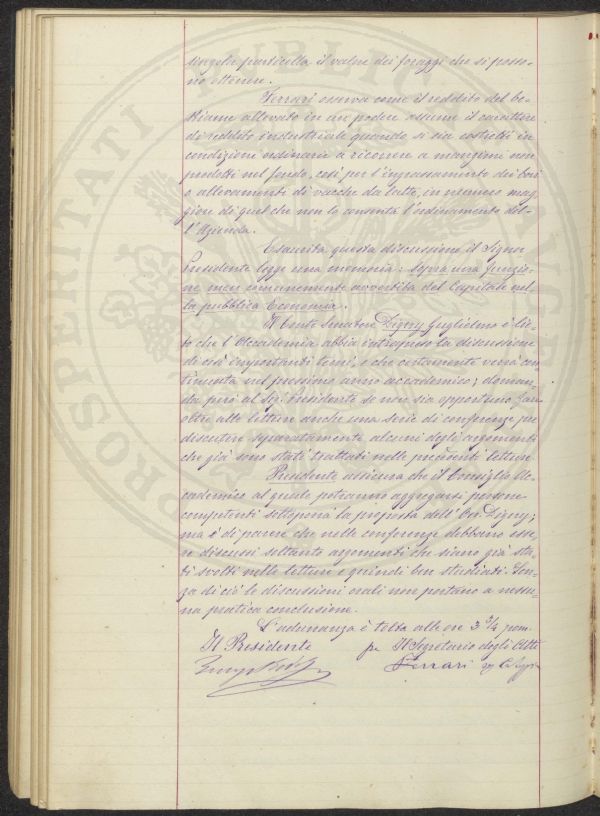 singola particella il valore dei foraggi che si posso-
no ottenere.
Ferrari osserva come il reddito del be-
stiame allevato in un podere assume il carattere
di reddito industriale quando si sia costretti in
condizioni ordinarie a ricorrere a mangimi non
prodotti nel fondo, così per l'ingrassamento dei bovi
o allevamenti di vacche da latte, in numero mag-
giore di quel che non lo consenta l'ordinamento del-
l'Azienda.
Esaurita questa discussione il Signor
Presidente legge una memoria: sopra una funzio-
ne men comunemente avvertita del Capitale nel-
la pubblica Economia.
Il Conte Senatore Digny Guglielmo è lie-
to che l'Accademia abbia intrapreso la discussione
di così importanti temi, e che certamente verrà con-
tinuata nel prossimo anno accademico; doman-
da però al Sig. Presidente se non sia opportuno far
oltre alle letture anche una serie di conferenze per
discutere separatamente alcuni degli argomenti
che già sono stati trattati nelle precedenti letture.
Presidente assicura che il Consiglio Ac-
cademico al quale potranno aggregarsi persone
competenti sottoporrà la proposta dell'On. Digny;
ma è di parere che nelle conferenze debbano esse-
re discussi soltanto argomenti che siano già sta-
ti svolti nelle letture e quindi ben studiati. Sen-
za di ciò le discussioni orali non portano a nessu-
na pratica conclusione.
L'adunanza è tolta alle ore 3 3/4 pom.
Il Presidente pr Il Segretario degli Atti
Ferrari
PROSPERITATI PUBLICAE AUGENDAE